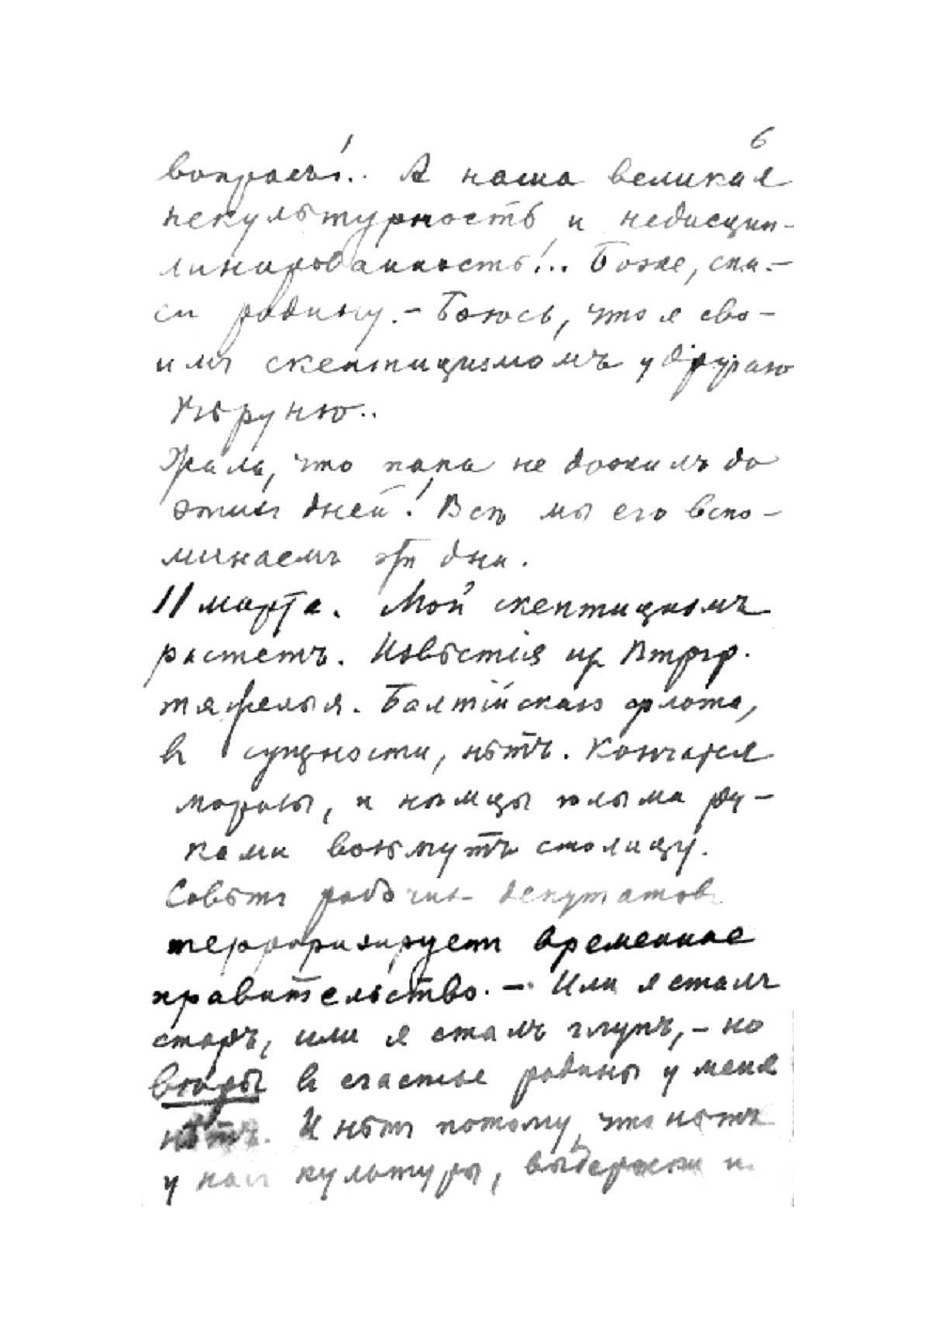 6
вопросъ!.. А наша великая
некультурность и недисцип-
линированность!.. Боже, спа-
си родину. – Боюсь, что я сво-
имъ скептицизмомъ удручаю
Вѣруню..
Жаль, что папа не дожилъ до
этихъ дней! Всѣ мы его вспо-
минаемъ эти дни.
11 марта. Мой скептицизмъ
растетъ. Извѣстія из Птргр.
тяжелыя. Балтійскаго флота,
въ сущности, нѣтъ. Кончатся
морозы, и нѣмцы голыми ру-
ками возьмутъ столицу.
Совѣтъ рабочих депутатов
терроризируетъ временное
правительство. – Или я сталъ
старъ, или я сталъ глупъ, – но
вѣры въ счастье родины у меня
нѣтъ. И нѣтъ потому, что нѣтъ
у нас культуры, выдержки и